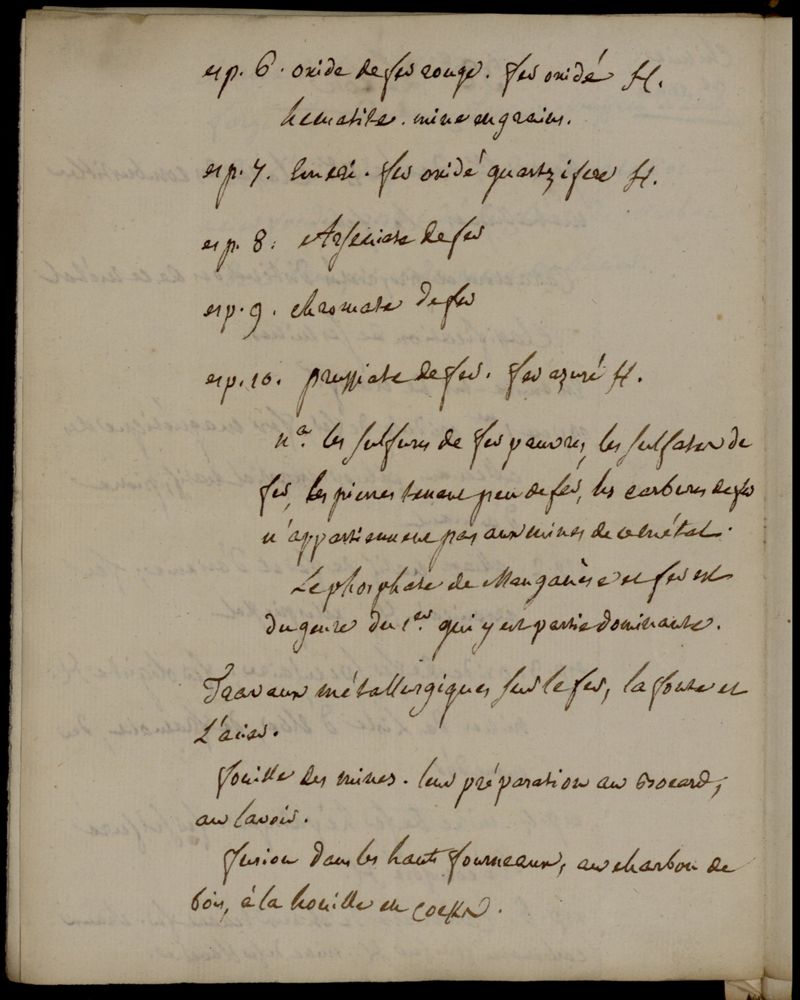 esp. 6. oxide de fer rouge. fer oxidé H.
hematite. mine en grains.
esp. 7. Emeri. fer oxidé quartzifere H.
esp. 8. Arseniate de fer
esp. 9. chromate de fer
esp. 10. prussiate de fer. fer azuré H.
na. les sulfures de fer pauvres, les sulfates de
fer, les pierres tenant peu de fer, les carbures de fer
n'appartiennent pas aux mines de ce métal.
Le phosphate de Manganèse et fer est
du genre du 1er. qui y est partie dominante.
Travaux métallurgiques sur le fer, la fonte et
L'acier.
fouille des mines. leur préparation au Bocard,
au lavoir.
fusion dans les hauts fourneaux, au charbon de
bois, à la houille en